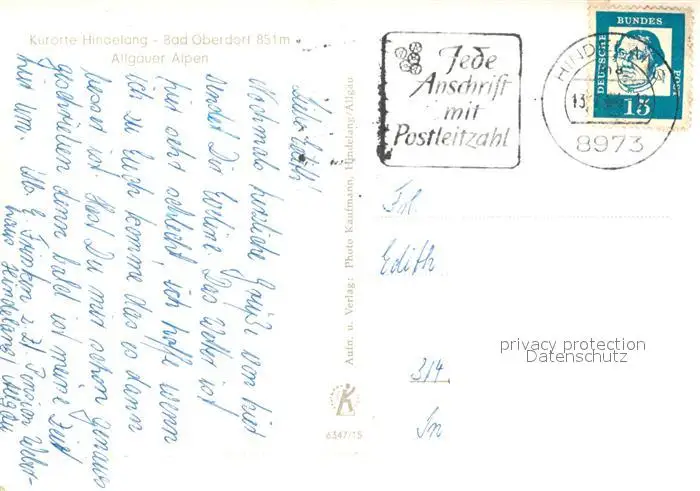 Kurorte Hindelang - Bad Oberdorf 851 m
Allgäuer Alpen
Jede
Anschrift
mit
Postleitzahl
HINDELANG
13.
8973
DEUTSCHE
BUNDES
POST
15
Liebe Edith!
Nochmals herzliche Grüße von hier
sendet Dir Eveline. Das Wetter ist
hier sehr schlecht ich hoffe wenn
ich zu Euch komme das es dann
besser ist. Hast Du mir schon genaues
geschrieben denn bald ist meine Zeit
hier um.
haus Hindelang Allgäu
Aufn. u. Verlag: Photo Kaufmann, Hindelang/Allgäu
K
6347/15
Frl.
Edith
314
In
privacy protection
Datenschutz